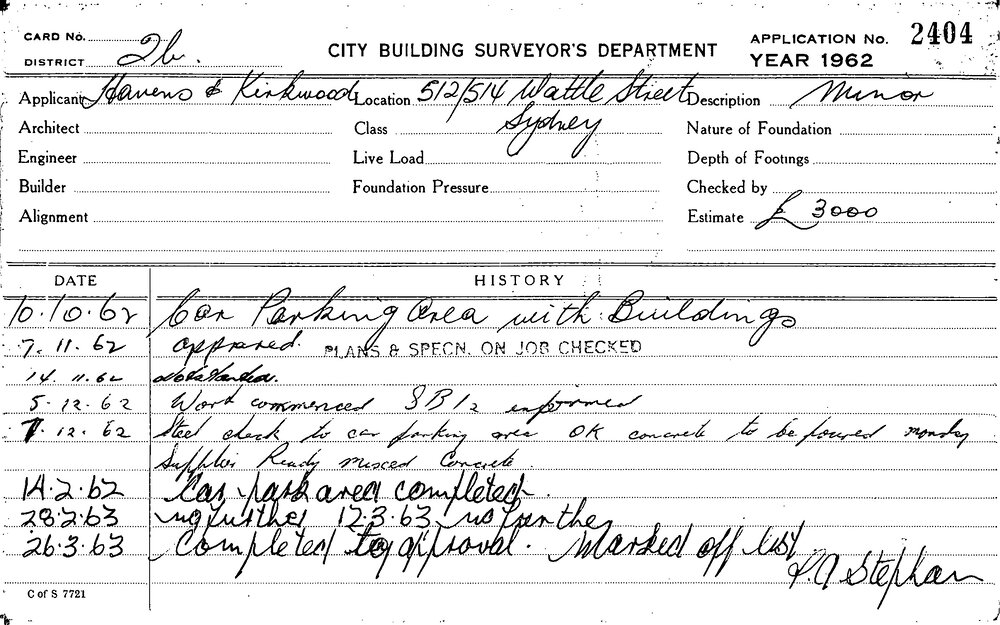 CARD No.
DISTRICT 2b.
CITY BUILDING SURVEYOR'S DEPARTMENT
APPLICATION No. 2404
YEAR 1962
Applicant Havens & Kirkwood Location 512/514 Wattle Street Description Minor
Sydney
Architect Class Nature of Foundation
Engineer Live Load Depth of Footings
Builder Foundation Pressure Checked by
Alignment Estimate £ 3000
DATE HISTORY
10.10.62 Car Parking Area with Buildings
7.11.62 approved. PLANS & SPECN. ON JOB CHECKED
14.11.62 not started.
5.12.62 Work commenced informed
7.12.62 Steel check to car parking area OK concrete to be poured monday
Supplier Ready Mixed Concrete.
14.2.62 Car park area completed.
28.2.63 no further 12.3.63 no further
26.3.63 Completed to approval. Marked off list
Stephan
C of S 7721